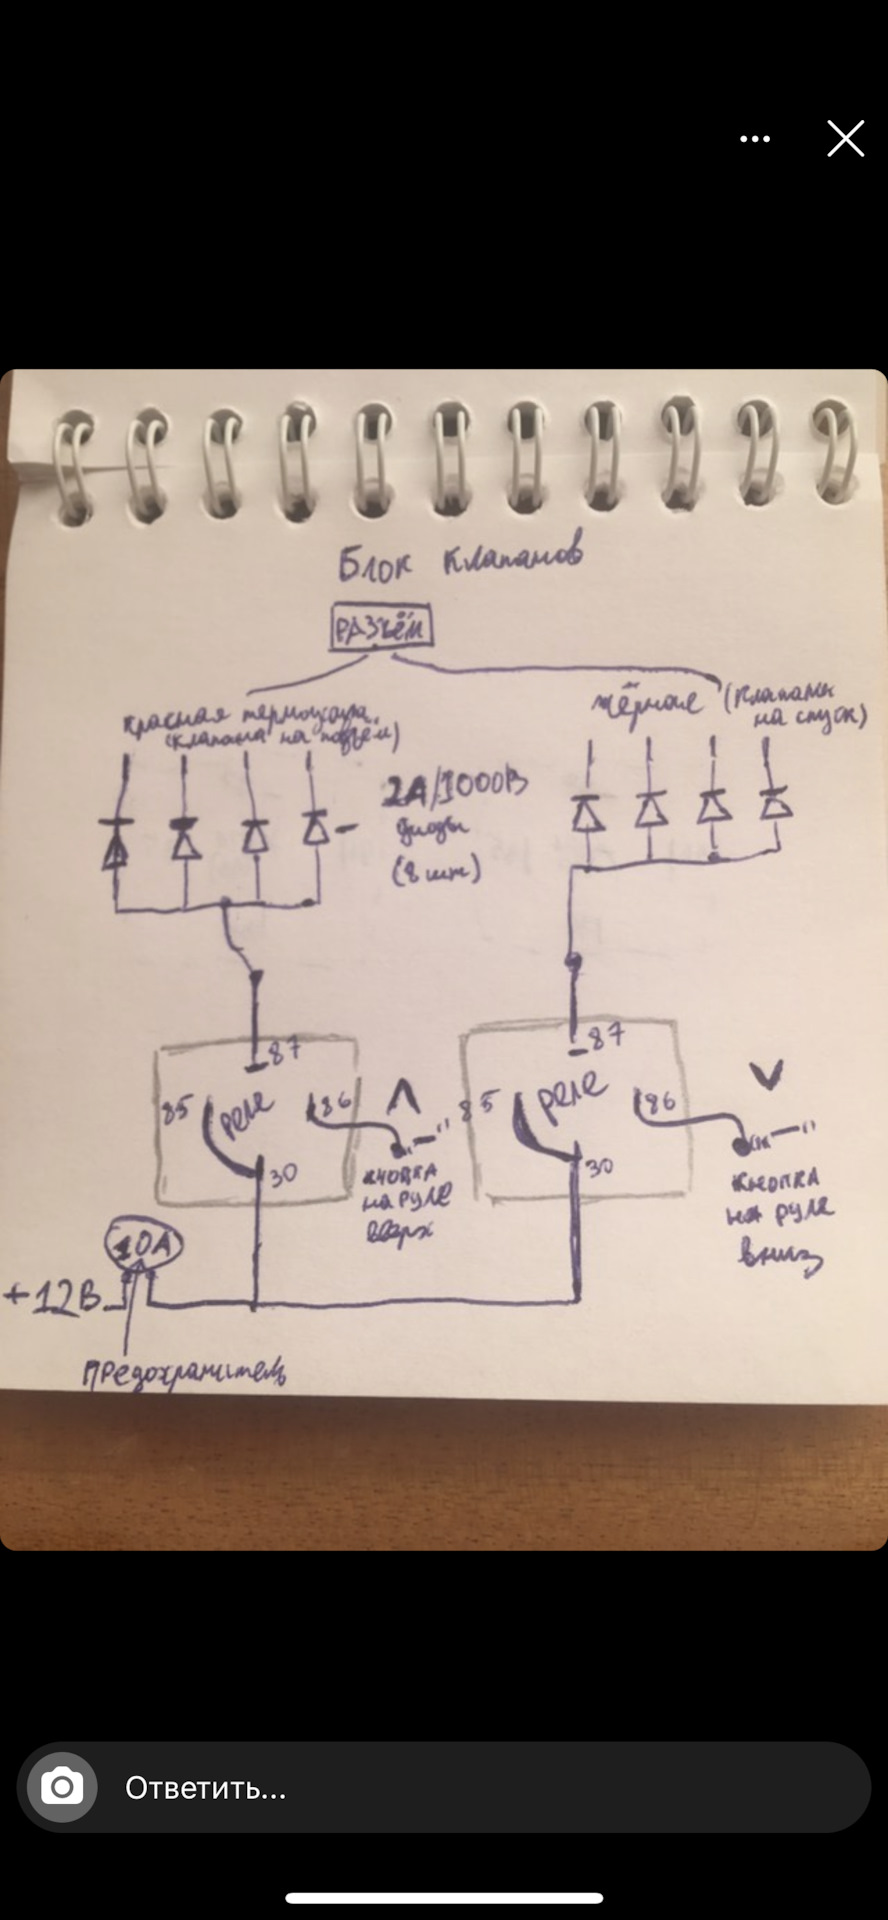 Блок клапанов
РАЗЪЁМ
красная термоусадка
(клапана на подъём)
чёрная (клапана
на спуск)
2А/1000В
диоды
(8 шт)
87
85
реле
86
30
Λ
кнопка
на руле
вверх
87
85
реле
86
30
V
кнопка
на руле
вниз
10А
+12В
Предохранитель
Ответить...